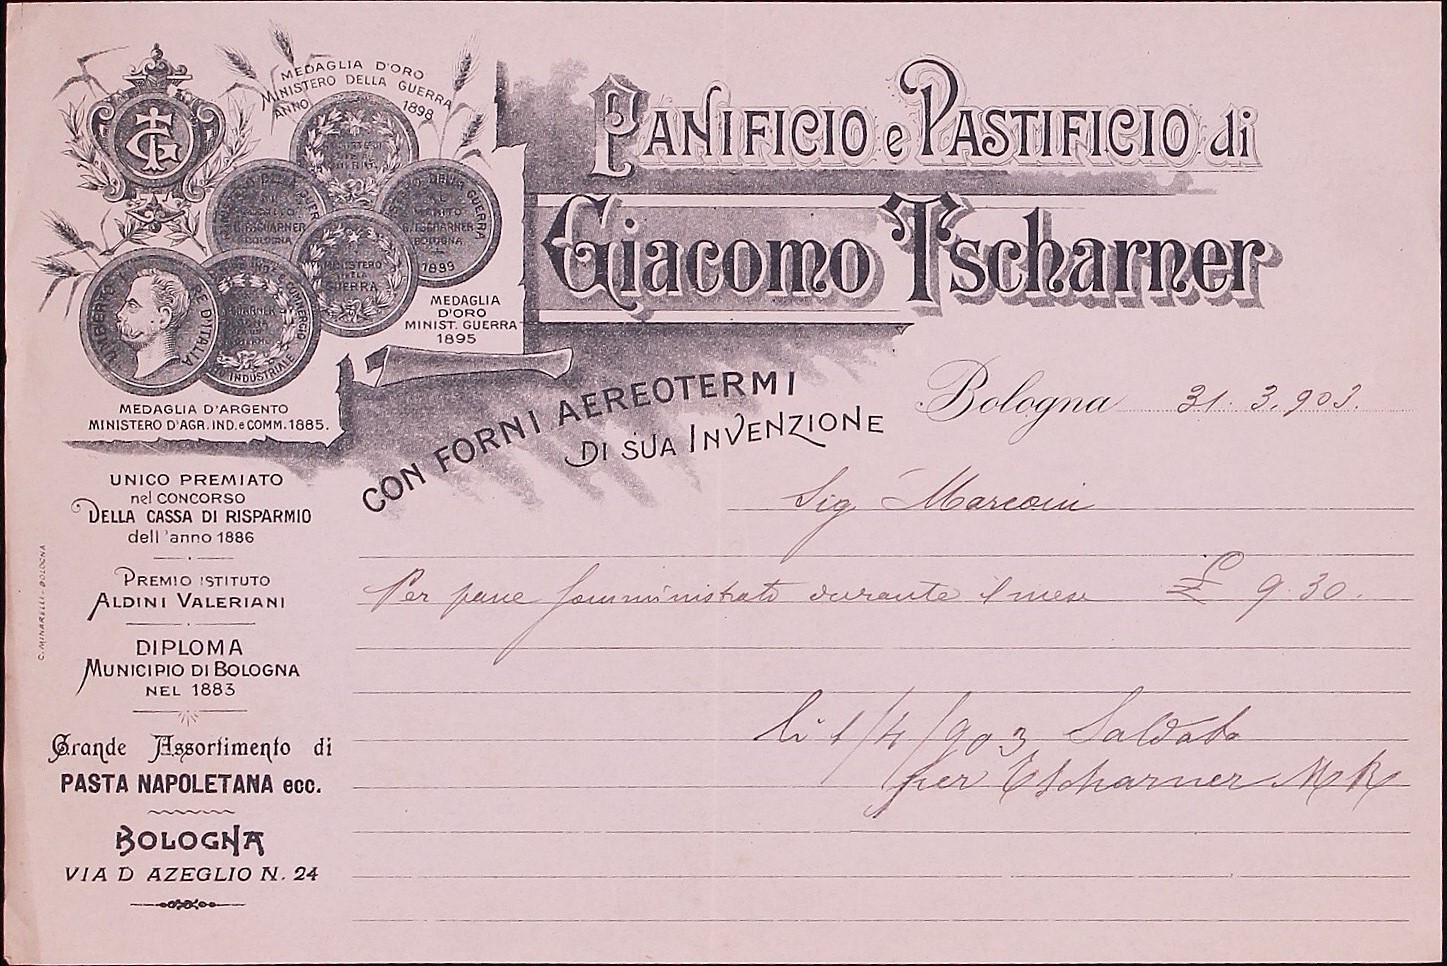 MEDAGLIA D'ORO
MINISTERO DELLA GUERRA
ANNO 1898
PANIFICIO e PASTIFICIO di
Giacomo Tscharner
TG
AL
MERITO
G. TSCHARNER
BOLOGNA
1899
MINISTERO
DELLA
GUERRA
UMBERTO I RE D'ITALIA
MEDAGLIA
D'ORO
MINIST. GUERRA
1895
MEDAGLIA D'ARGENTO
MINISTERO D'AGR. IND. e COMM. 1885.
CON FORNI AEREOTERMI
DI SUA INVENZIONE
Bologna 31. 3. 903.
Sig Marconi
Per pane somministrato durante il mese £ 9.30.
li 1/4/903 Saldato
per Tscharner MR
UNICO PREMIATO
nel CONCORSO
DELLA CASSA DI RISPARMIO
dell'anno 1886
PREMIO ISTITUTO
ALDINI VALERIANI
DIPLOMA
MUNICIPIO DI BOLOGNA
NEL 1883
Grande Assortimento di
PASTA NAPOLETANA ecc.
BOLOGNA
VIA D AZEGLIO N. 24
C. MINARELLI - BOLOGNA